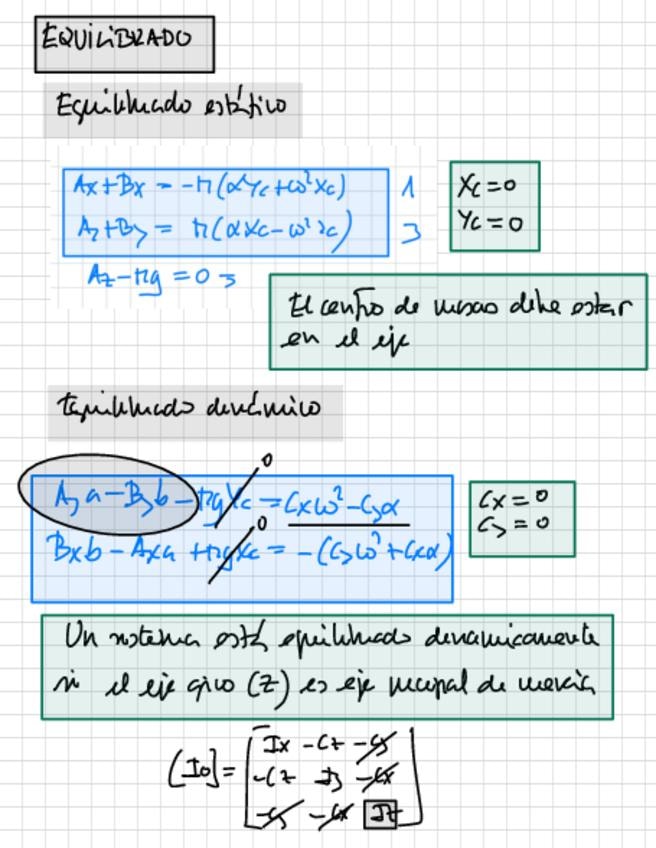 EQUILIBRADO
Equilibrado estático
Ax+Bx = -M(αYc+ω²Xc) 1
Ay+By = M(αXc-ω²Yc) 3
Az-Mg = 0 3
Xc=0
Yc=0
El centro de masas debe estar
en el eje
Equilibrado dinámico
Aya-Byb-MgYc = Cxω²-Cyα
0
Bxb-Axa+MgXc = -(Cyω²+Cxα)
0
Cx=0
Cy=0
Un sistema está equilibrado dinamicamente
si el eje giro (Z) es eje principal de inercia
[Io]=
Ix -Cz -Cy
-Cz Iy -Cx
-Cy -Cx Iz